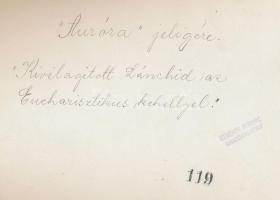 "Auróra" jeligére.
"Kivilagitott Lánchid az
Eucharisztikus kehellyel."
119